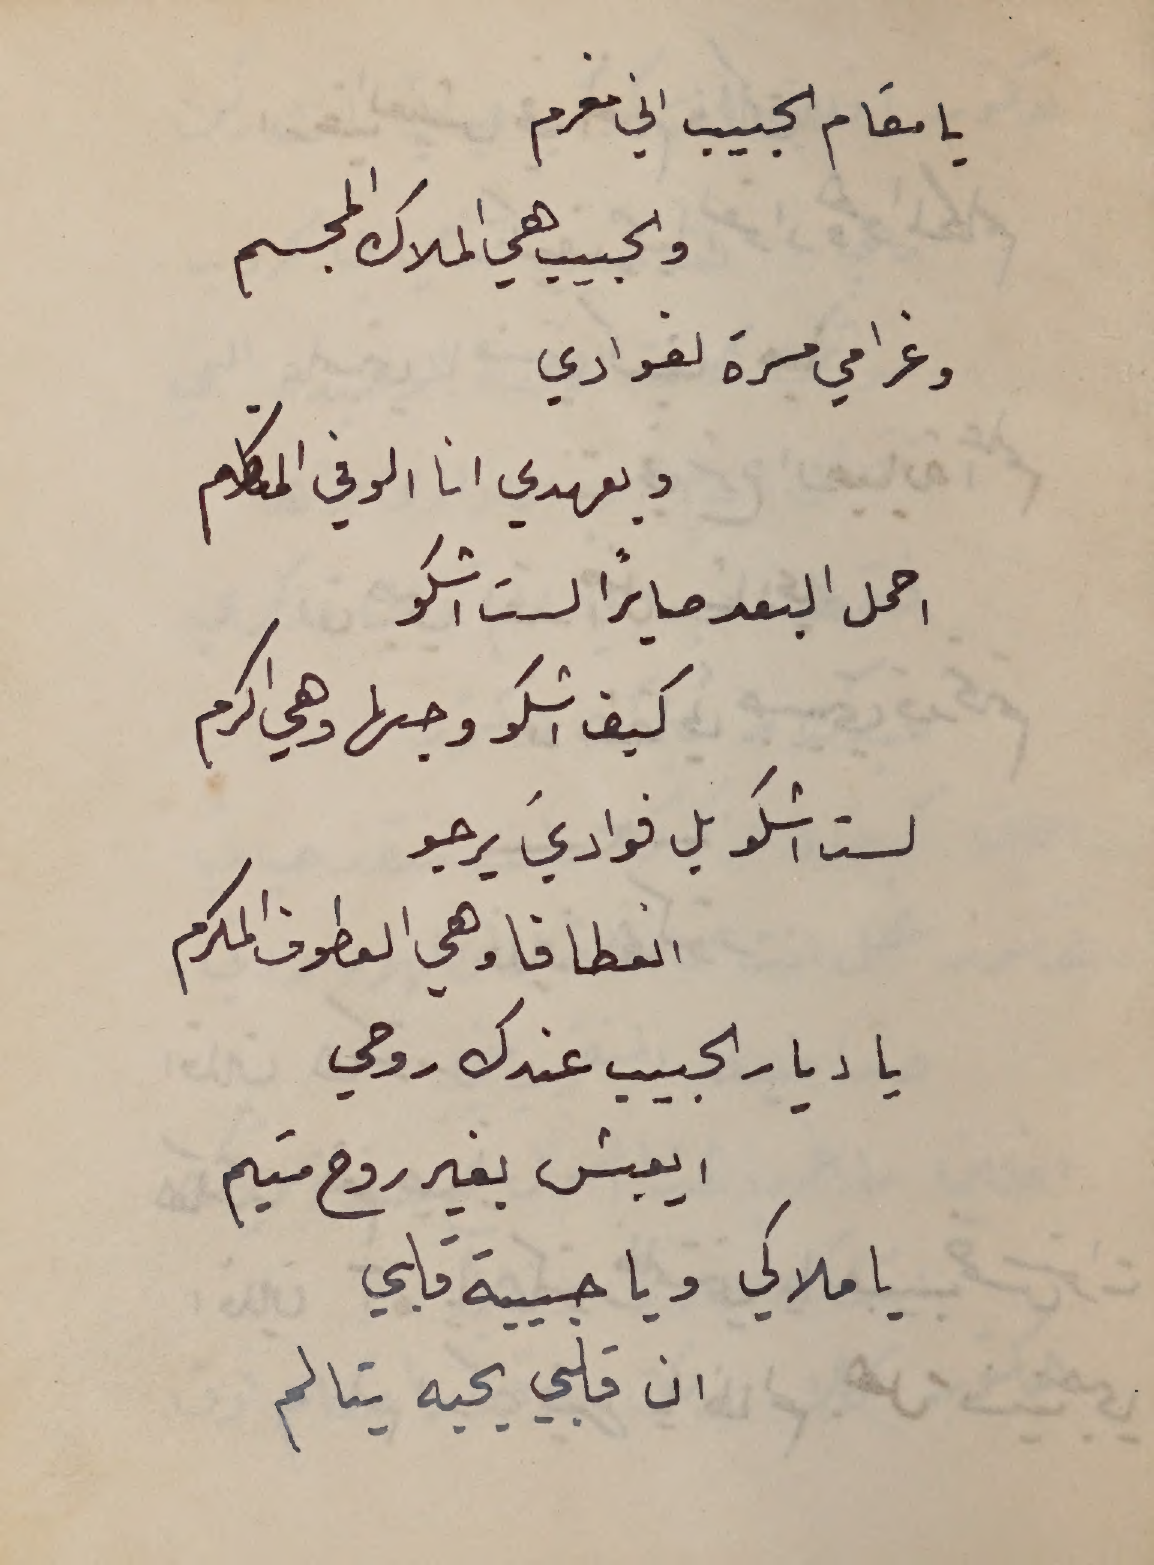 يا مقام الحبيب اني مغرم
والحبيب هي الملاك المجسم
وغرامي مسرة لفوادي
وبعهدي انا الوفي
احمل البعد صابرًا لست اشكو
كيف اشكو وحبها وهي اكرم
لست اشكو بل فوادي يرجو
انعطافا وهي العطوف المكرم
يا ديار الحبيب عندك روحي
ايعيش بغير روح متيم
يا ملاكي ويا حبيبة قلبي
ان قلبي بحبه يتالم